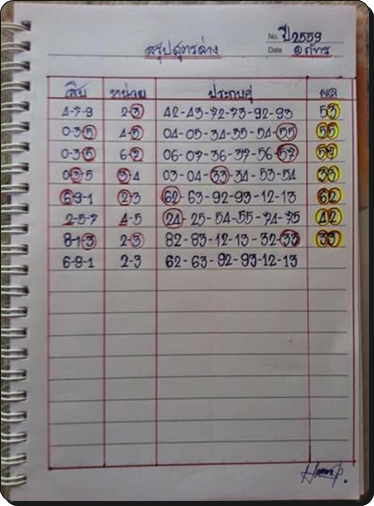 No. ปี2559
สรุปสูตรล่าง
Date ๑ ภัทร
สิบ หน่วย ประกบคู่ ผล
4-7-9 2-3 42-43-72-73-92-93 53
0-3-5 4-5 04-05-34-35-54-55 55
0-3-5 6-7 06-07-36-37-56-57 57
0-3-5 3-4 03-04-33-34-53-54 33
6-9-1 2-3 62-63-92-93-12-13 62
2-5-7 4-5 24-25-54-55-74-75 42
8-1-3 2-3 82-83-12-13-32-33 33
6-9-1 2-3 62-63-92-93-12-13